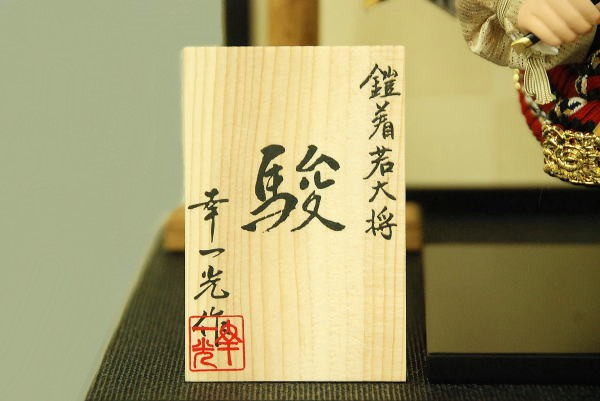 鎧着若大将
駿
幸一光作
幸一光